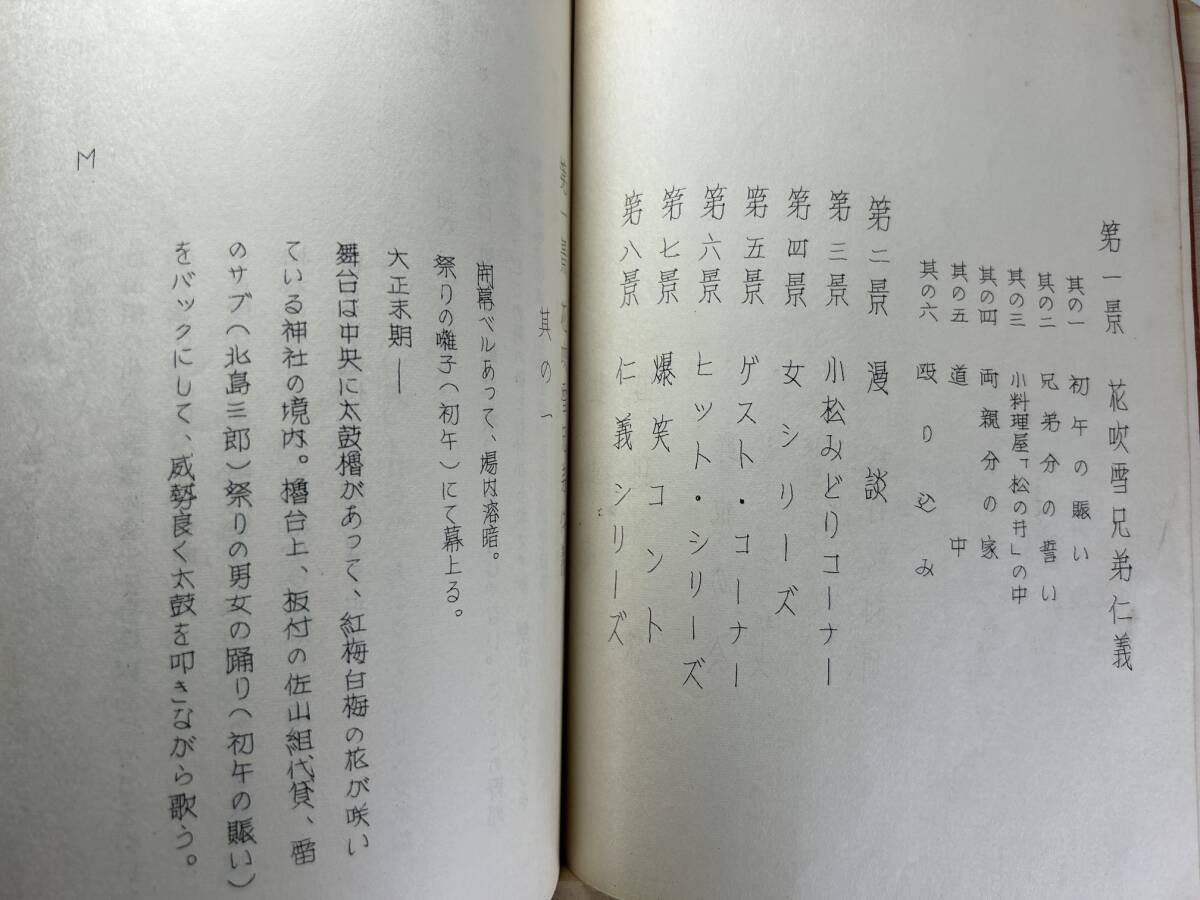 第一景 花吹雪兄弟仁義
其の一 初午の賑い
其の二 兄弟分の誓い
其の三 小料理屋「松の井」の中
其の四 両親分の家
其の五 道中
其の六 殴り込み
第二景 漫談
第三景 小松みどりコーナー
第四景 女シリーズ
第五景 ゲスト・コーナー
第六景 ヒット・シリーズ
第七景 爆笑コント
第八景 仁義シリーズ
其の一
開幕ベルあって、場内溶暗。
祭りの囃子(初午)にて幕上る。
大正末期――
舞台は中央に太鼓櫓があって、紅梅白梅の花が咲い
ている神社の境内。櫓台上、板付の佐山組代貸、雷
のサブ(北島三郎)祭りの男女の踊り(初午の賑い)
をバックにして、威勢良く太鼓を叩きながら歌う。
M